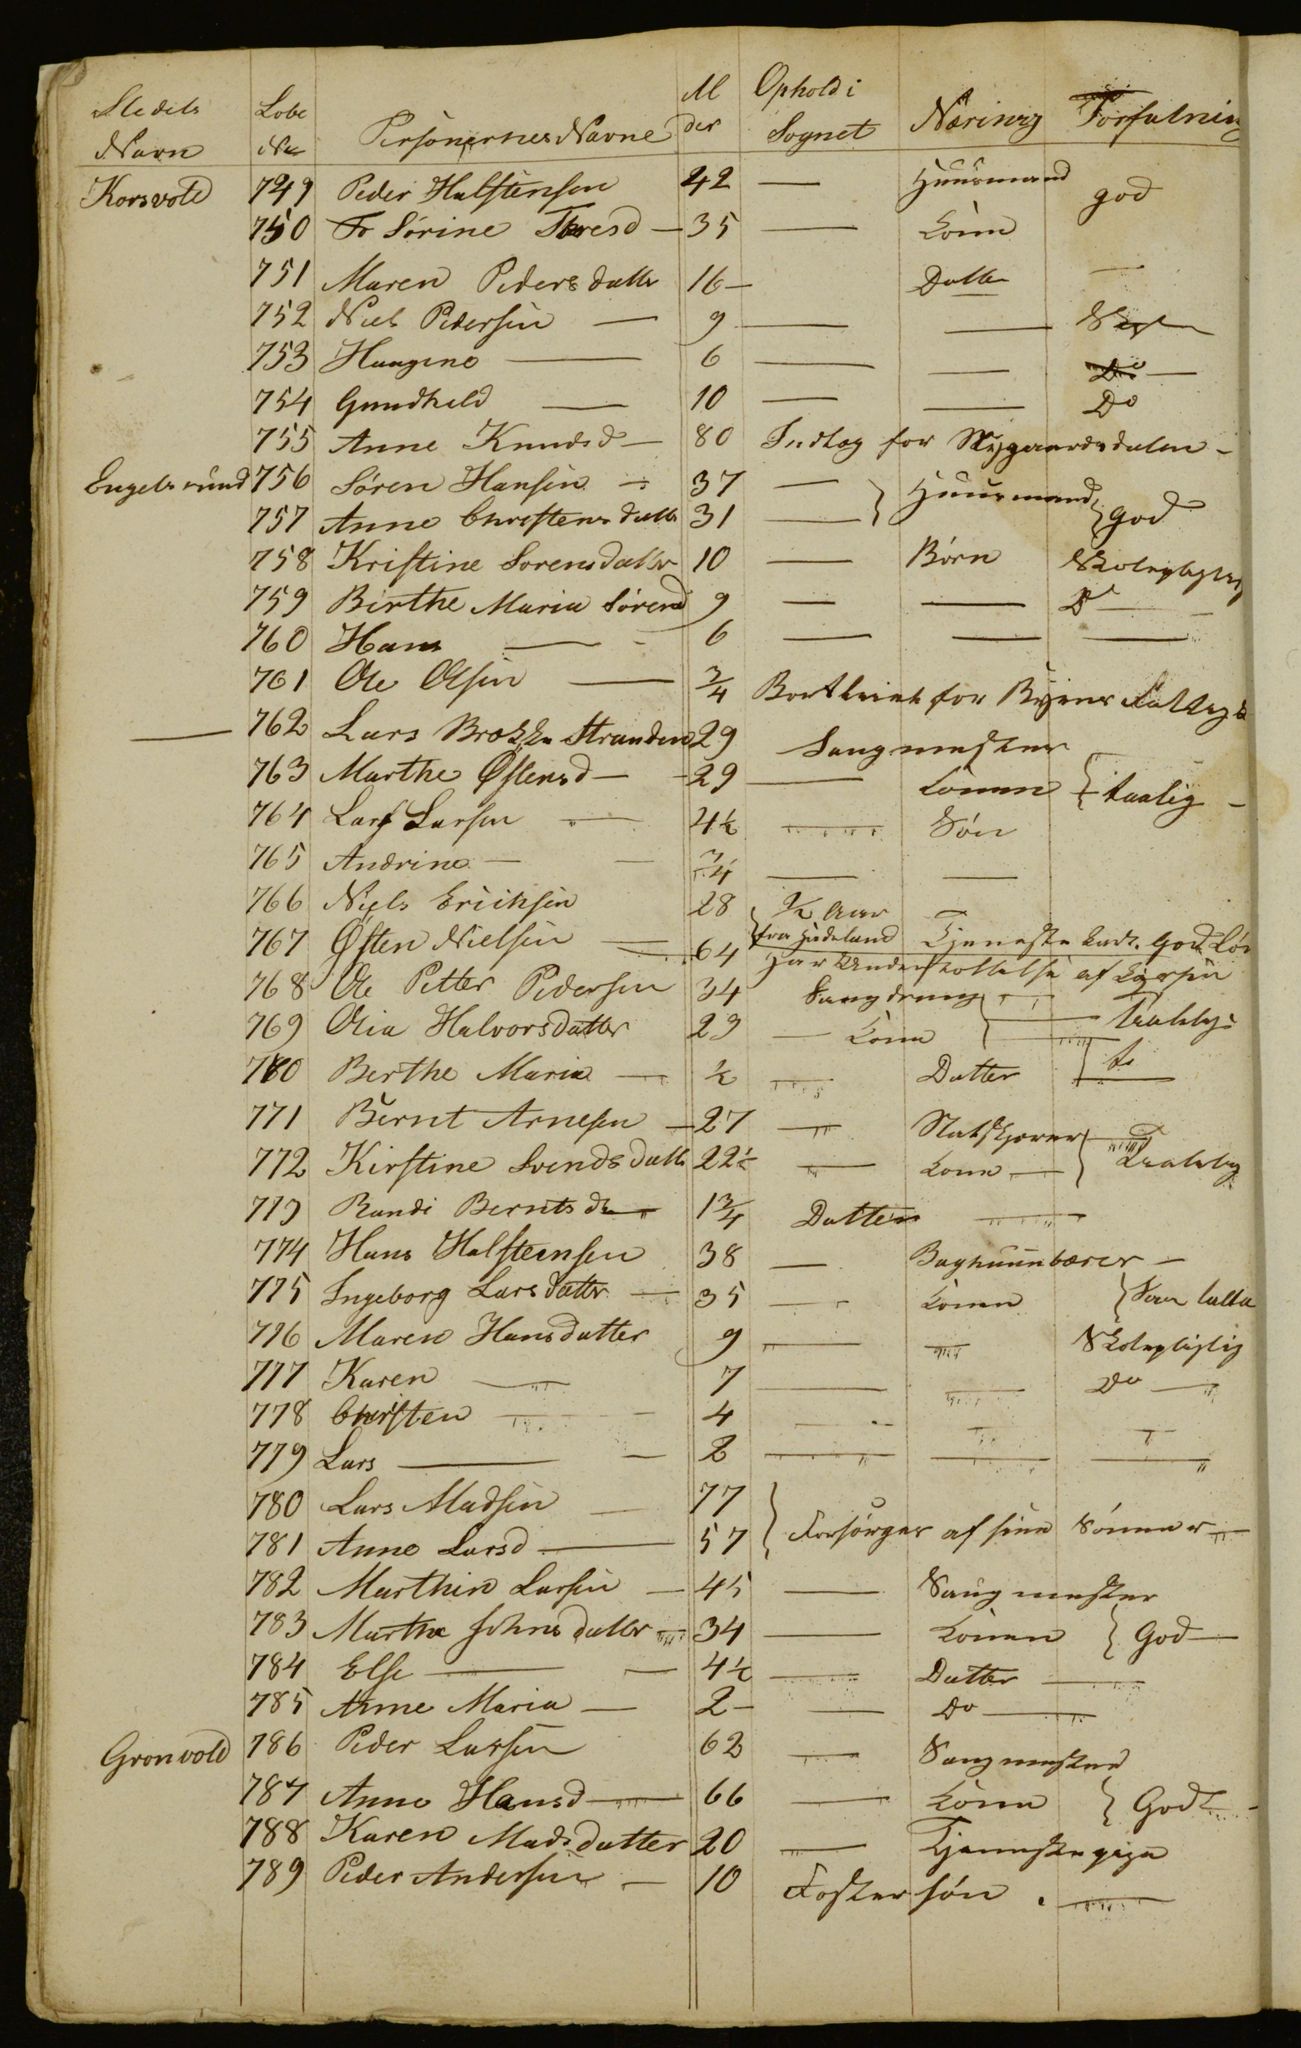 Stedets Navn Lobe No Personernes Navne Alder Ophold i Sognet Næring Forfatning
Korsvold 749 Peder Halstensen 42 — Huusmand god
750 Fr Sørine Thoresd — 35 — Kone
751 Maren Pedersdatter 16 — Datter —
752 Niels Pedersen — 9 — —
753 Haagine — 6 — — Do —
754 Gundhild — 10 — — Do
755 Anne Knudsd — 80 Indlag for Nygaardsdalen —
Engelsrund 756 Søren Hansen — 37 — Huusmand god
757 Anne Christensdatter 31 —
758 Kristine Sorensdatter 10 — Børn Skolepligtig
759 Birthe Maria Sørend 9 — — Do —
760 Hans — 6 — — —
761 Ole Olsen — 3/4 Bortleiet for Byens Fattig
— 762 Lars Stranden 29 Saugmester
763 Marthe Østensd — 29 — Konen taalig —
764 Lars Larsen — 4½ — Søn
765 Andrine — 3/4 — —
766 Niels Erichsen 28 ½ Aar —
767 Østen Nielsen — 64 fra Hadeland Tjeneste God
768 Ole Petter Pedersen 34 Har Understøttelse af
Saugdreng
769 Olia Halvorsdatter 23 — Kone — Taalelig
780 Berthe Maria — ½ — Datter
771 Bernt Arnesen — 27 —
772 Kirstine Svendsdatter 22½ — Kone — Taalelig
773 Randi Berntsd — 1 3/4 Datter —
774 Hans Halsteensen 38 — —
775 Ingeborg Larsdatter — 35 — Konen
776 Maren Hansdatter 9 — — Skolepligtig
777 Karen — 7 — — Do —
778 Christen — 4 — — —
779 Lars — 2 — — —
780 Lars Madsen — 77 Forsørges af sine Sønner —
781 Anne Larsd — 57
782 Marthin Larsen — 45 — Saugmester
783 Marthe Johnsdatter — 34 — Konen God —
784 Else — 4½ — Datter —
785 Anne Maria — 2 — — Do —
Gronvold 786 Peder Larsen 62 — Saugmester
787 Anne Hansd — 66 — Kone Godt —
788 Karen Madsdatter 20 — Tjenestepige
789 Peder Andersen — 10 Fostersøn . —